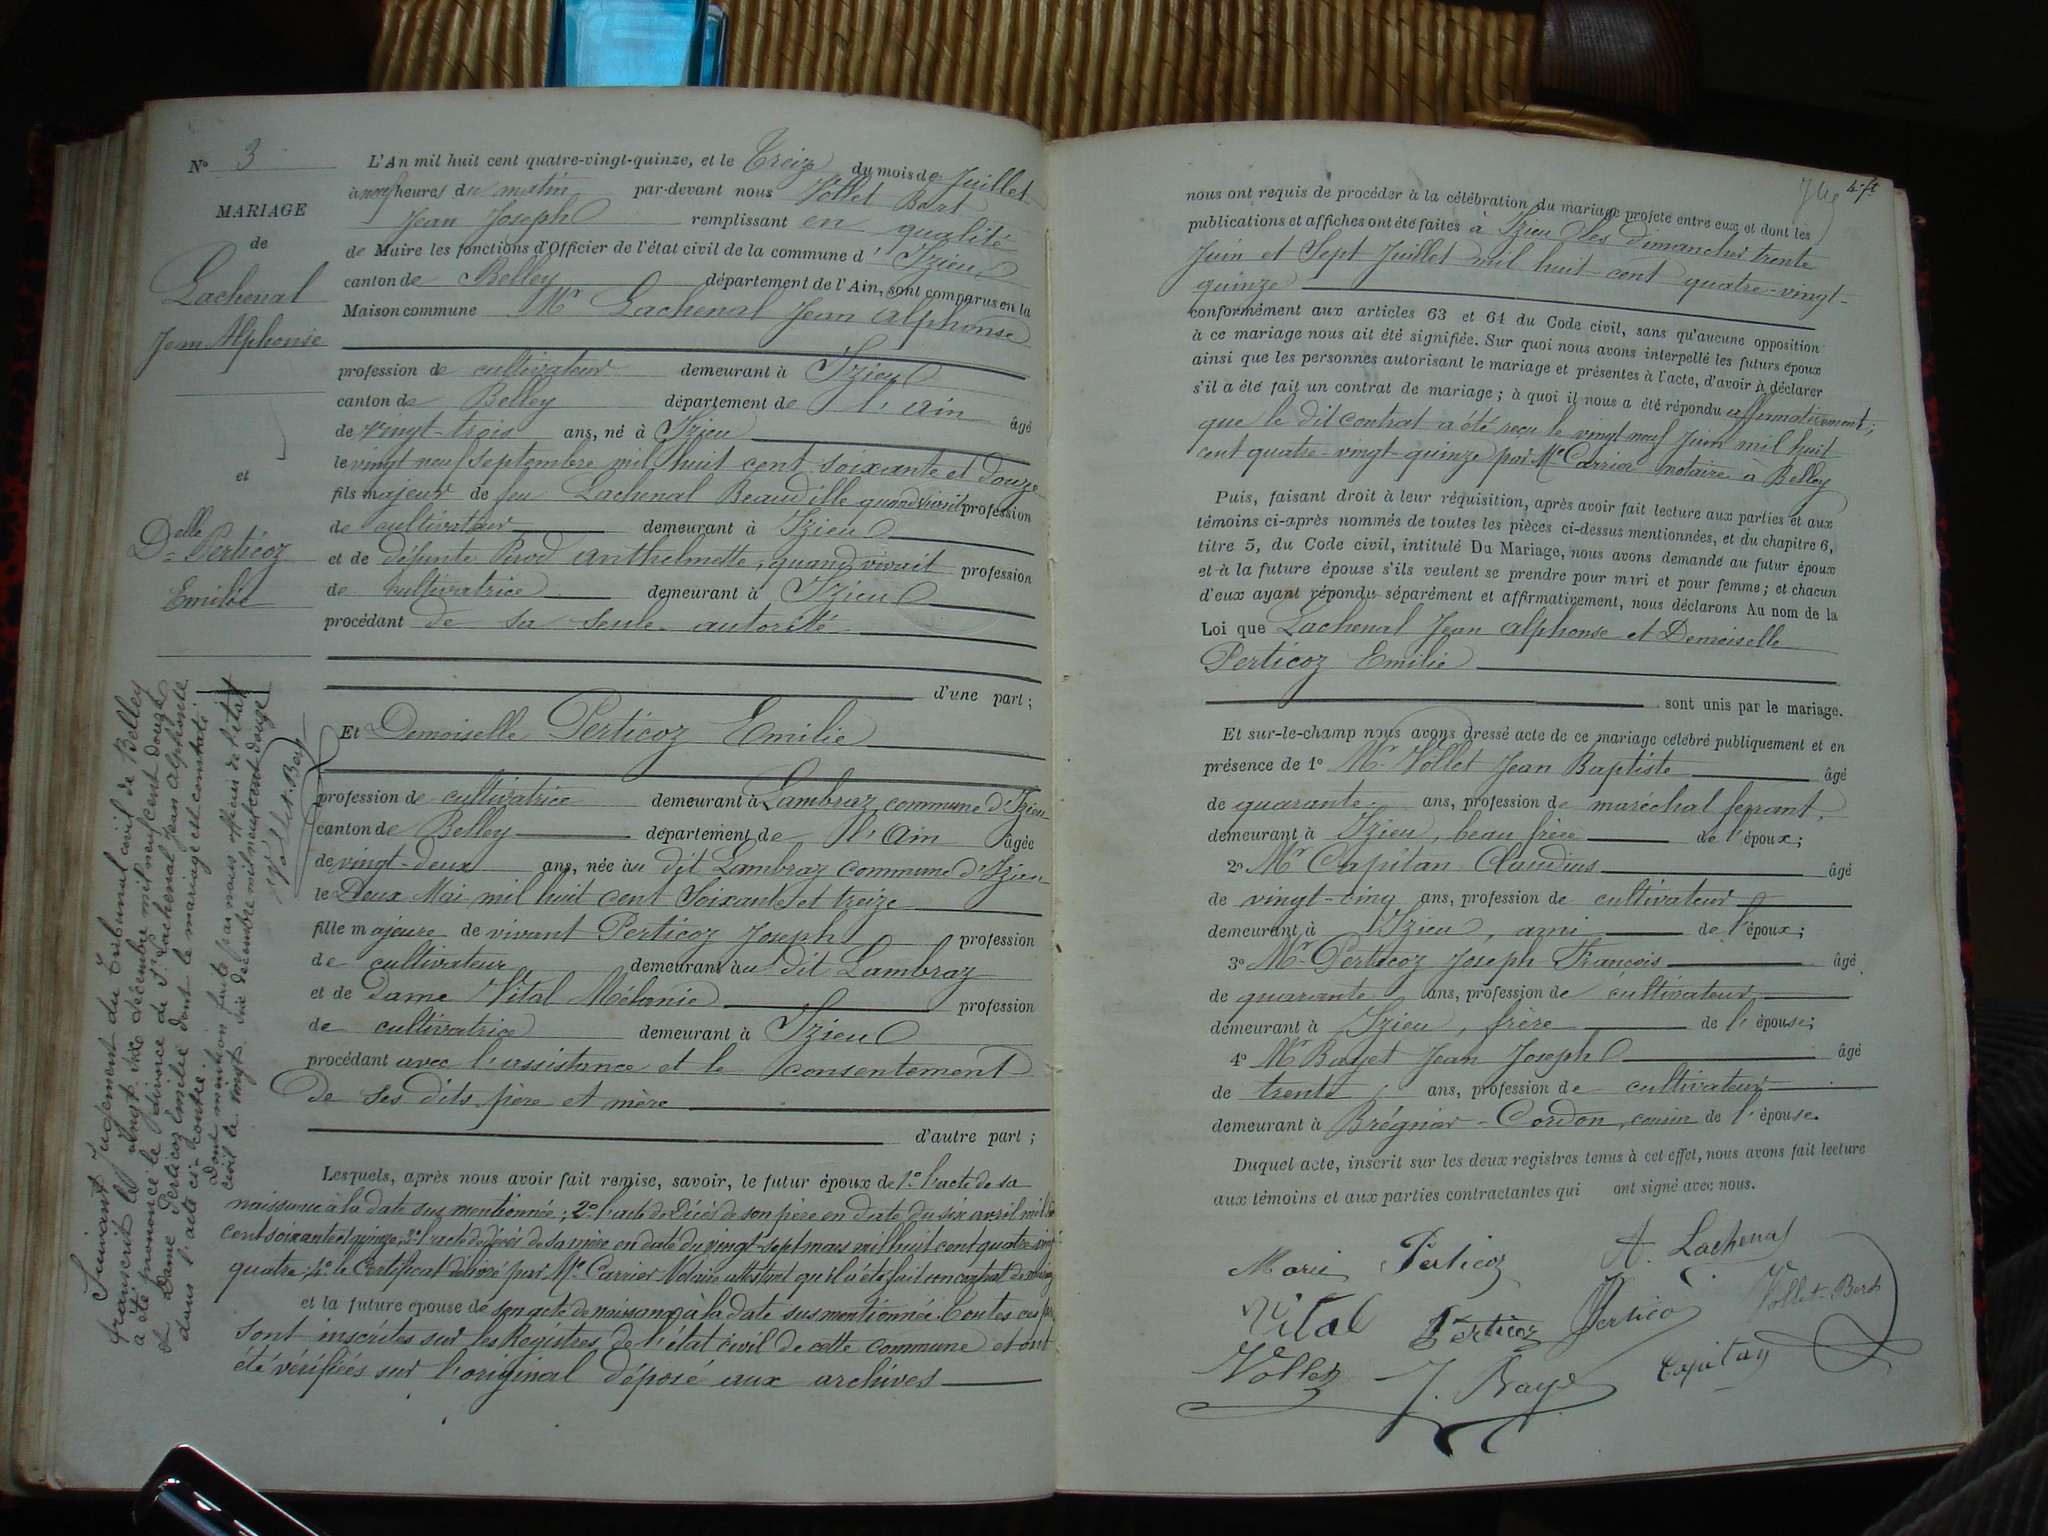 N° 3
MARIAGE
de
Lachenal
Jean Alphonse
et
Delle Perticoz
Emilie
Suivant jugement du tribunal civil de Belley
transcrit le vingt six décembre mil neuf cent douze
a été prononcé le divorce de Sr Lachenal Jean Alphonse
et Dame Perticoz Emilie dont le mariage est constaté
dans l'acte ci-contre.
Dont mention faite par nous officier de l'état
civil le vingt six décembre mil neuf cent douze
Vollet-Bert
L'An mil huit cent quatre-vingt-quinze, et le Treize du mois de Juillet
à neuf heures du matin par-devant nous Vollet Bert
Jean Joseph remplissant en qualité
de Maire les fonctions d'Officier de l'état civil de la commune d'Izieu
canton de Belley département de l'Ain, sont comparus en la
Maison commune Mr Lachenal Jean Alphonse
profession de cultivateur demeurant à Izieu
canton de Belley département de l'Ain âgé
de vingt-trois ans, né à Izieu
le vingt neuf septembre mil huit cent soixante et douze
fils majeur de feu Lachenal quand vivait profession
de cultivateur demeurant à Izieu
et de défunte Pirod Anthelmette, quand vivait profession
de cultivatrice demeurant à Izieu
procédant de sa seule autorité
d'une part;
Et Demoiselle Perticoz Emilie
profession de cultivatrice demeurant à Lambraz commune d'Izieu
canton de Belley département de l'Ain âgée
de vingt-deux ans, née au dit Lambraz commune d'Izieu
le Deux Mai mil huit cent Soixante et treize
fille majeure de vivant Perticoz Joseph profession
de cultivateur demeurant au dit Lambraz
et de Dame Vital Mélanie profession
de cultivatrice demeurant à Izieu
procédant avec l'assistance et le consentement
de ses dits père et mère
d'autre part;
Lesquels, après nous avoir fait remise, savoir, le futur époux de 1° l'acte de sa
naissance à la date sus mentionnée; 2° l'acte de décès de son père en date du six avril mil huit
cent soixante et quinze, 3° l'acte de décès de sa mère en date du vingt-sept mars mil huit cent quatre-vingt
quatre; 4° le Certificat délivré par Me Carrier Notaire attestant qu'il a été fait un contrat de mariage
et la future épouse de son acte de naissance à la date sus mentionnée Toutes ces
sont inscrites sur les Registres de l'état civil de cette commune et ont
été vérifiées sur l'original déposé aux archives
nous ont requis de procéder à la célébration du mariage projeté entre eux et dont les
publications et affiches ont été faites à Izieu les dimanches trente
Juin et Sept Juillet mil huit cent quatre-vingt-
quinze
conformément aux articles 63 et 64 du Code civil, sans qu'aucune opposition
à ce mariage nous ait été signifiée. Sur quoi nous avons interpellé les futurs époux
ainsi que les personnes autorisant le mariage et présentes à l'acte, d'avoir à déclarer
s'il a été fait un contrat de mariage; à quoi il nous a été répondu affirmativement;
que le dit contrat a été reçu le vingt neuf Juin mil huit
cent quatre-vingt-quinze par Me Carrier notaire à Belley
Puis, faisant droit à leur réquisition, après avoir fait lecture aux parties et aux
témoins ci-après nommés de toutes les pièces ci-dessus mentionnées, et du chapitre 6,
titre 5, du Code civil, intitulé Du Mariage, nous avons demandé au futur époux
et à la future épouse s'ils veulent se prendre pour mari et pour femme; et chacun
d'eux ayant répondu séparément et affirmativement, nous déclarons Au nom de la
Loi que Lachenal Jean Alphonse et Demoiselle
Perticoz Emilie
sont unis par le mariage.
Et sur-le-champ nous avons dressé acte de ce mariage célébré publiquement et en
présence de 1° Mr Vollet Jean Baptiste âgé
de quarante ans, profession de maréchal ferrant,
demeurant à Izieu, beau frère de l'époux;
2° Mr Capitan Claudius âgé
de vingt-cinq ans, profession de cultivateur
demeurant à Izieu, ami de l'époux;
3° Mr Perticoz Joseph François âgé
de quarante ans, profession de cultivateur
demeurant à Izieu, frère de l'épouse;
4° Mr Bayet Jean Joseph âgé
de trente ans, profession de cultivateur
demeurant à Brégnier-Cordon, cousin de l'épouse.
Duquel acte, inscrit sur les deux registres tenus à cet effet, nous avons fait lecture
aux témoins et aux parties contractantes qui ont signé avec nous.
Marie Perticoz A. Lachenal
Vital Perticoz Perticoz Vollet-Bert
Vollet J. Baye Capitan